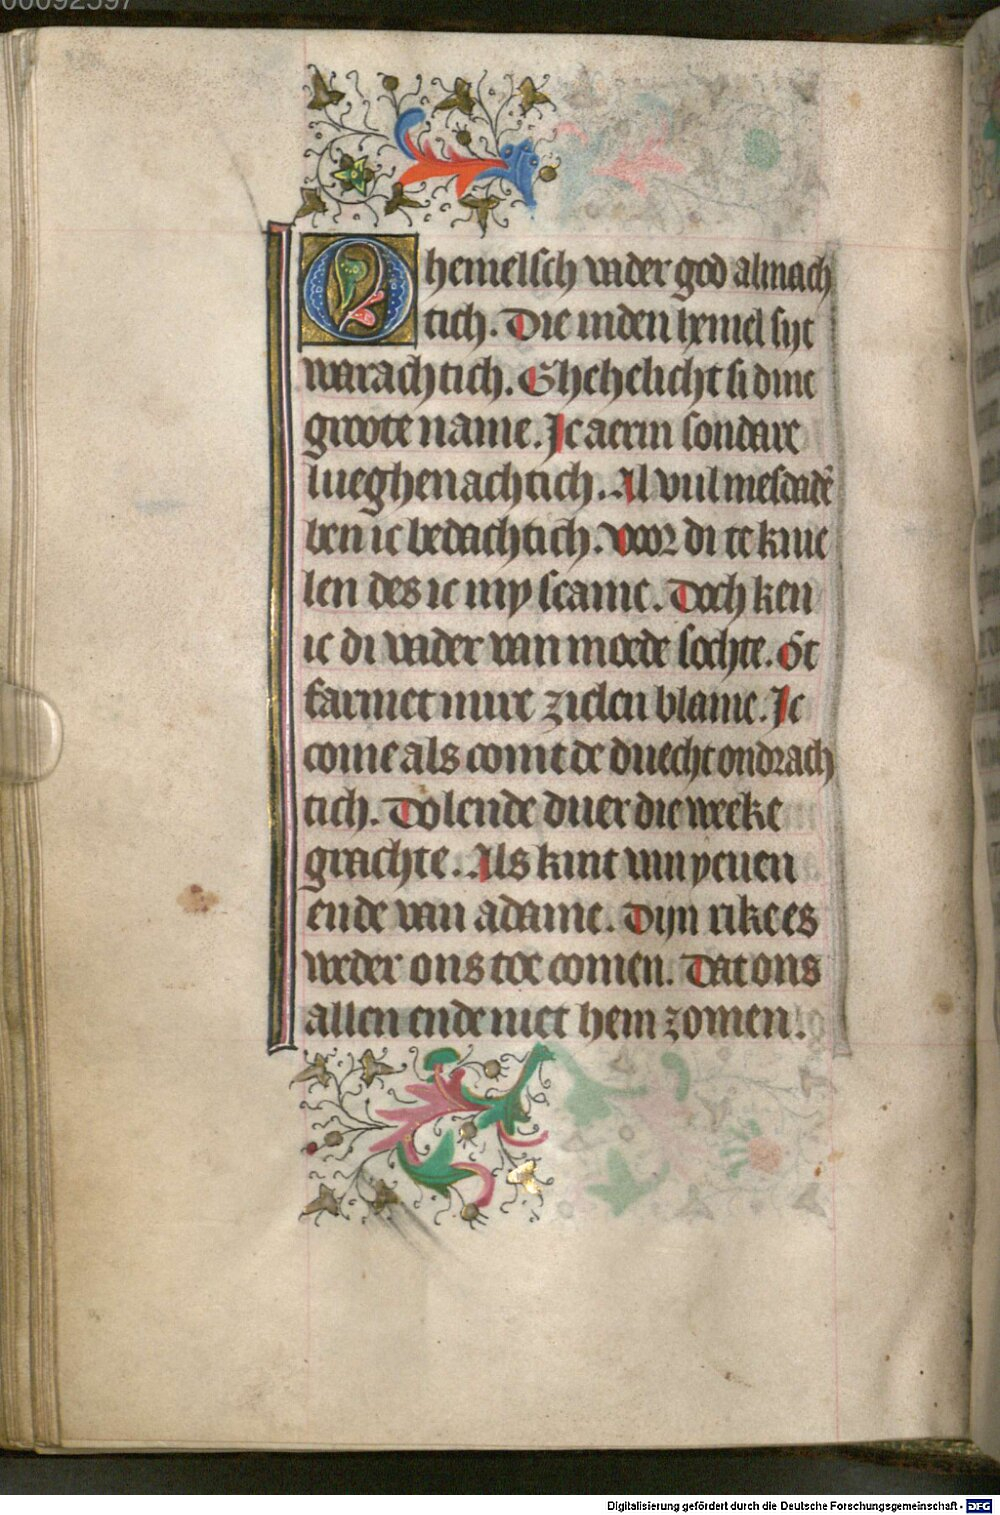 00092597
O hemelsch vader god almach
tich. Die inden hemel sijt
warachtich. Ghehelicht si dine
groote name. Ic aerm sondare
lueghenachtich. Al vul mesdadē
ben ic bedachtich. Voor di te knie
len des ic my scame. Doch ken
ic di vader van moede sochte. Ot
farmet mire zielen blame. Ic
come als comt de duecht ondrach
tich. Dolende duer die weeke
grachte. Als kint van yeuen
ende van adame. Dijn rike es
weder ons toe comen. Dat ons
allen ende niet hem zomen.
Digitalisierung gefördert durch die Deutsche Forschungsgemeinschaft - DFG